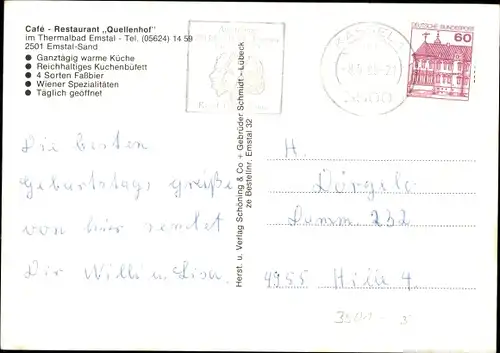 Café - Restaurant „Quellenhof"
im Thermalbad Emstal - Tel. (05624) 14 59
2501 Emstal-Sand
● Ganztägig warme Küche
● Reichhaltiges Kuchenbüfett
● 4 Sorten Faßbier
● Wiener Spezialitäten
● Täglich geöffnet
KASSEL 1
3500
DEUTSCHE BUNDESPOST
60
Herst. u. Verlag Schöning & Co + Gebrüder Schmidt - Lübeck
ze Bestellnr. Emstal 32
Die besten
Geburtstags grüße
von hier sendet
Dir Willi u. Lisa.
H.
Damm 232
4955 Hille 4